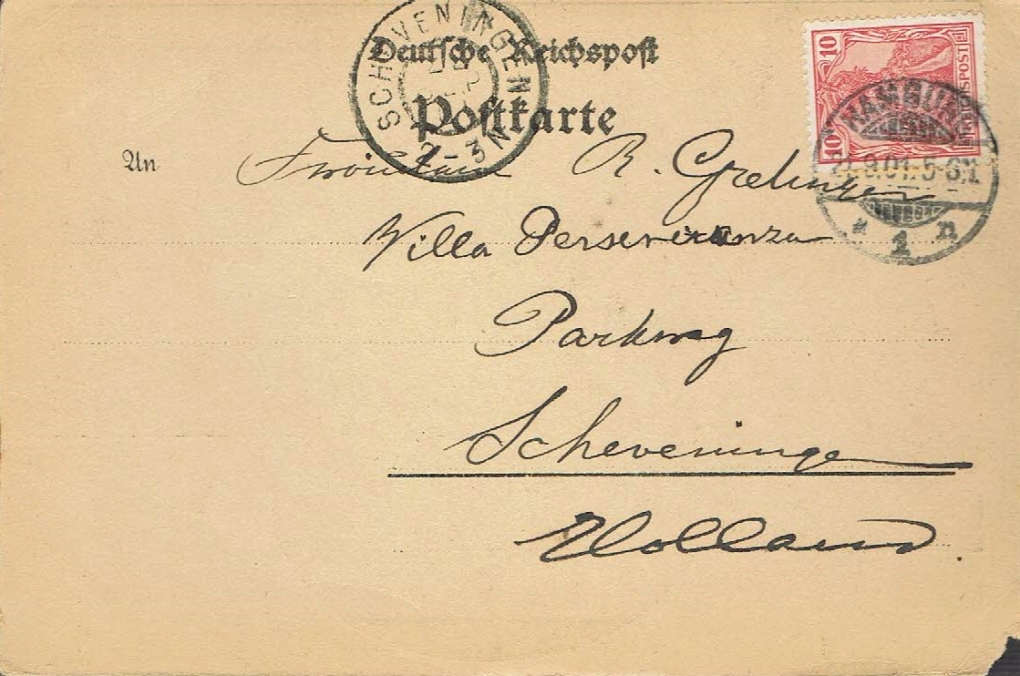 Deutsche Reichspost
Postkarte
SCHEVENINGEN
2-3N
10
10
REICHSPOST
HAMBURG
9.01.5-6N
* 1 n
An
Fräulein R. Grelinger
Villa Perseveranza
Parkweg
Scheveningen
Holland.